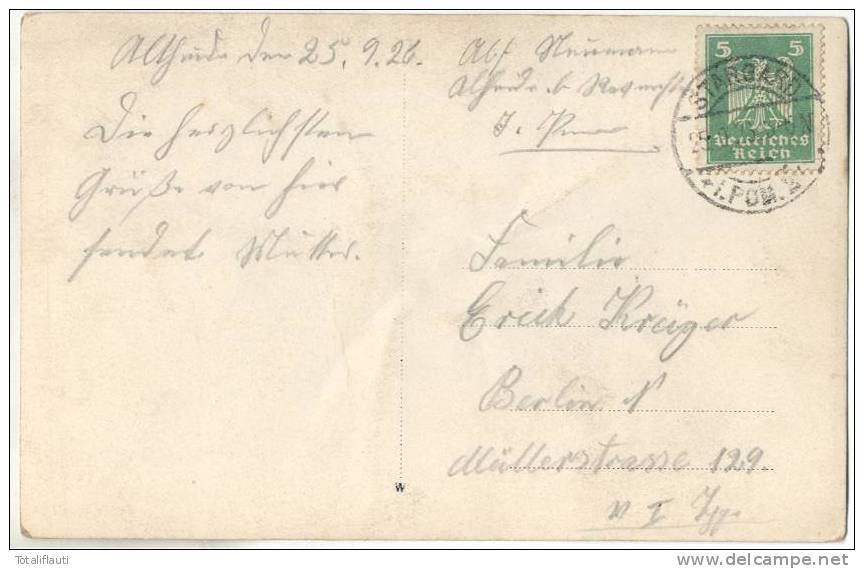 Altheide den 25.9.26.
Die herzlichsten
Grüße von hier
sendet Mutter.
Abs. Neumann
Altheide b
5 5
Deutsches
Reich
STARGARD
i. POM.
Familie
Erich Krüger
Berlin N
Müllerstrasse 129.
I
W
Totaliflauti
www.delcampe.net